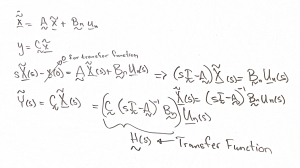 Ẋ = A X + Bₙ uₙ
y = C X
0 for transfer function
sX(s) - X(0) = A X(s) + Bₙ Uₙ(s) => (sI - A) X(s) = Bₙ Uₙ(s)
X(s) = (sI - A)⁻¹ Bₙ Uₙ(s)
Y(s) = C X(s) = (C (sI - A)⁻¹ Bₙ) Uₙ(s)
H(s) ← Transfer Function